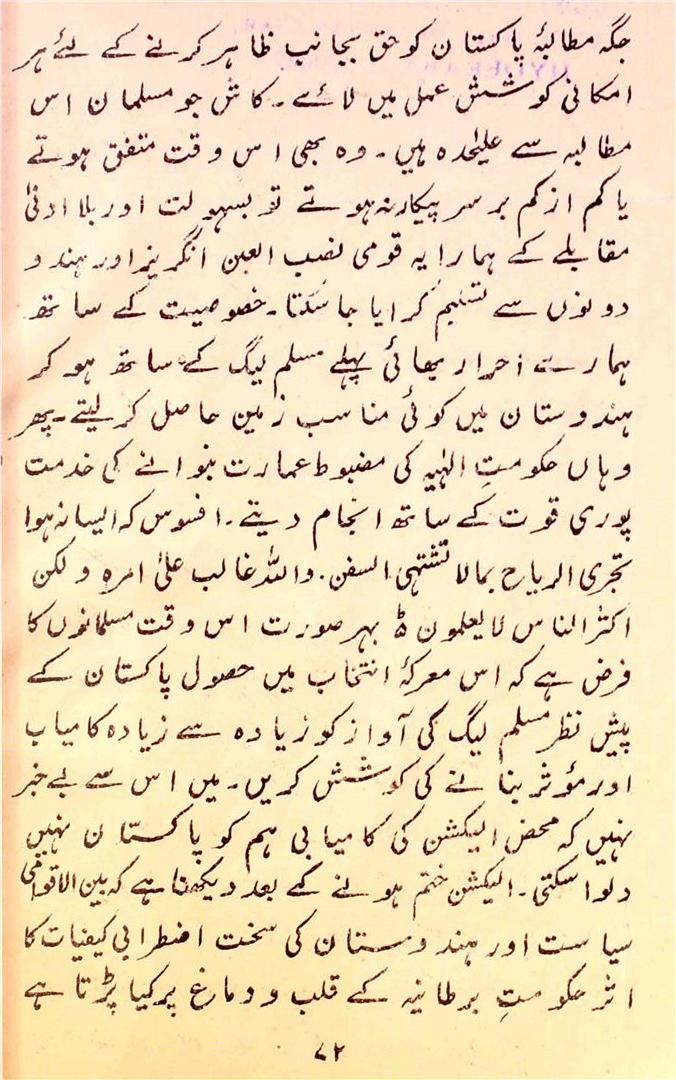 جگہ مطالبۂ پاکستان کو حق بجانب ظاہر کرنے کے لئے ہر
امکانی کوشش عمل میں لائے۔ کاش جو مسلمان اس
مطالبہ سے علیٰحدہ ہیں۔ وہ بھی اس وقت متفق ہوتے
یا کم از کم برسرپیکار نہ ہوتے تو بسہولت اور بلا ادنیٰ
مقابلے کے ہمارا یہ قومی نصب العین انگریز اور ہندو
دونوں سے تسلیم کرایا جا سکتا۔ خصوصیت کے ساتھ
ہمارے احرار بھائی پہلے مسلم لیگ کے ساتھ ہو کر
ہندوستان میں کوئی مناسب زمین حاصل کر لیتے۔ پھر
وہاں حکومتِ الٰہیہ کی مضبوط عمارت بنوانے کی خدمت
پوری قوت کے ساتھ انجام دیتے۔ افسوس کہ ایسا نہ ہوا
تجری الریاح بما لا تشتہی السفن۔ واللہ غالب علیٰ امرہ ولکن
اکثر الناس لا یعلمون ۵ بہر صورت اس وقت مسلمانوں کا
فرض ہے کہ اس معرکۂ انتخاب میں حصول پاکستان کے
پیش نظر مسلم لیگ کی آواز کو زیادہ سے زیادہ کامیاب
اور مؤثر بنانے کی کوشش کریں۔ میں اس سے بے خبر
نہیں کہ محض الیکشن کی کامیابی ہم کو پاکستان نہیں
دلوا سکتی۔ الیکشن ختم ہونے کے بعد دیکھنا ہے کہ بین الاقوامی
سیاست اور ہندوستان کی سخت اضطرابی کیفیات کا
اثر حکومتِ برطانیہ کے قلب و دماغ پر کیا پڑتا ہے
۷۲